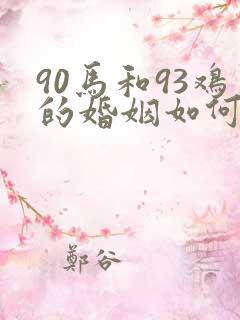 90馬和93鸡
的婚姻如何
鄭谷